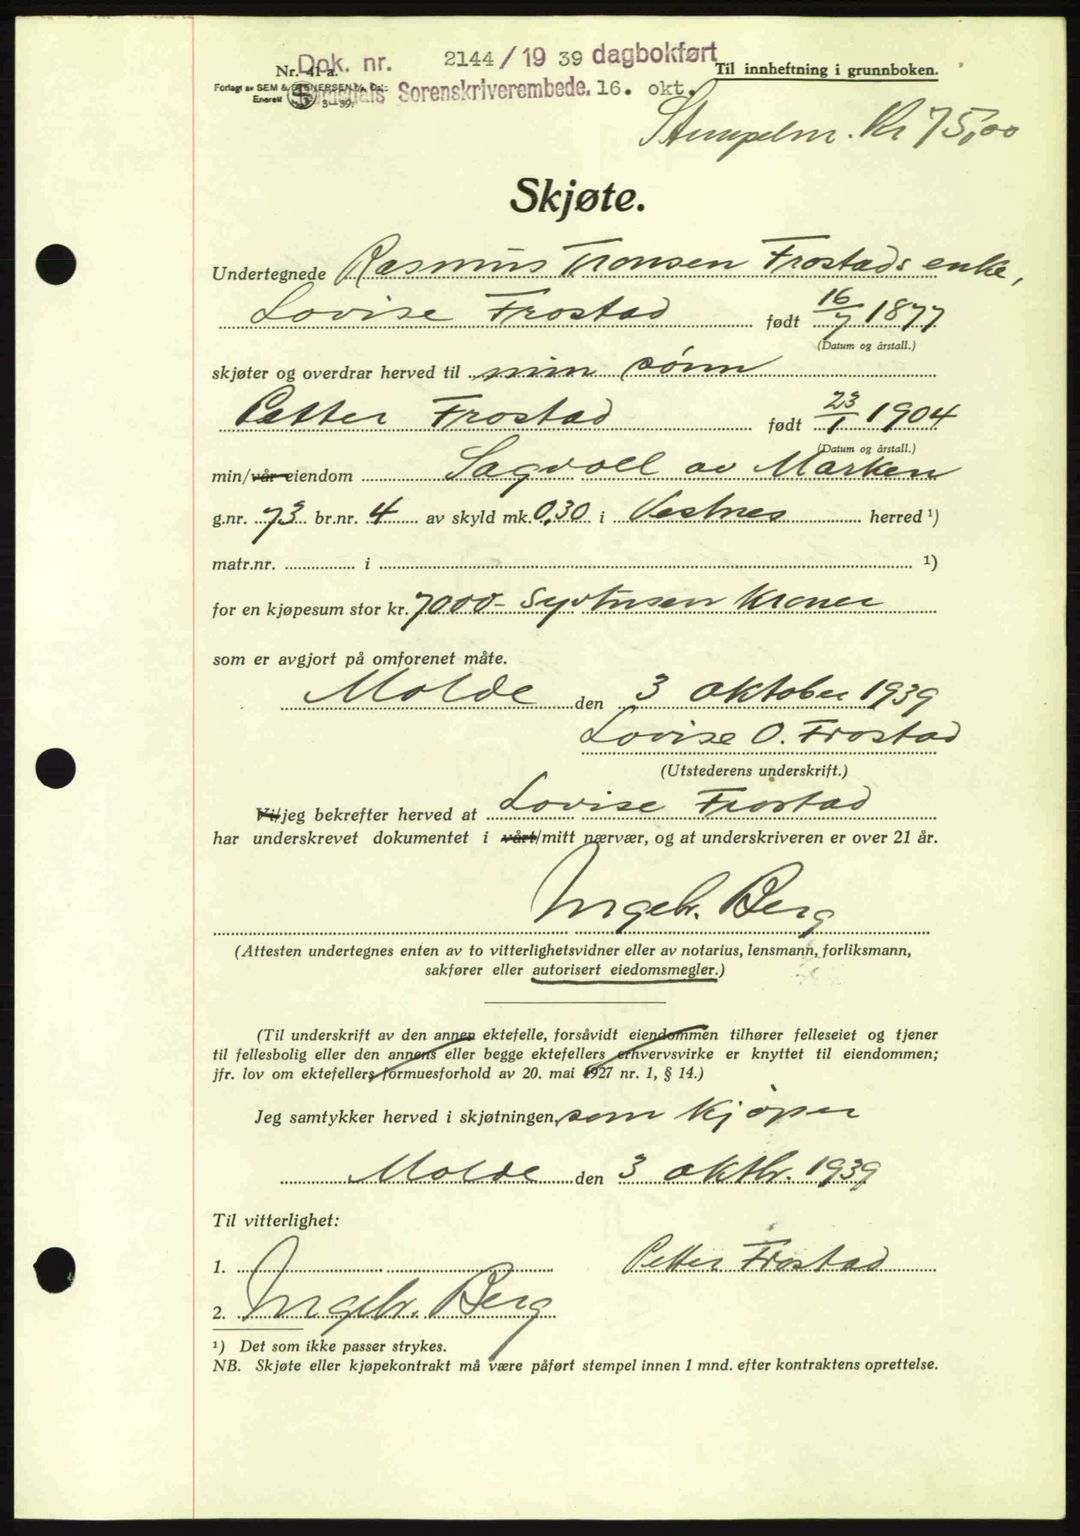 Dok. nr. 2144/19 39 dagbokført
Nr. 41 a. Til innheftning i grunnboken.
Forlagt av SEM &
Enerett 3-39. Sorenskriverembede. 16. okt.
Stempelm. Kr 75,00
Skjøte.
Undertegnede Rasmus Tronsen Frostads enke,
Lovise Frostad født 16/7 1877
(Datum og årstall.)
skjøter og overdrar herved til min sønn
Petter Frostad født 23/1 1904
(Datum og årstall.)
min/vår eiendom Sagvoll av Marken
g.nr. 73 br.nr. 4 av skyld mk. 0,30 i Vestnes herred ¹)
matr.nr. i ¹)
for en kjøpesum stor kr. 7000- Syvtusen kroner
som er avgjort på omforenet måte.
Molde den 3 oktober 1939
Lovise O. Frostad
(Utstederens underskrift.)
Vi/jeg bekrefter herved at Lovise Frostad
har underskrevet dokumentet i vårt/mitt nærvær, og at underskriveren er over 21 år.
Ingebr. Berg
(Attesten undertegnes enten av to vitterlighetsvidner eller av notarius, lensmann, forliksmann,
sakfører eller autorisert eiedomsmegler.)
(Til underskrift av den annen ektefelle, forsåvidt eiendommen tilhører felleseiet og tjener
til fellesbolig eller den annens eller begge ektefellers erhvervsvirke er knyttet til eiendommen;
jfr. lov om ektefellers formuesforhold av 20. mai 1927 nr. 1, § 14.)
Jeg samtykker herved i skjøtningen, som kjøper
Molde den 3 oktbr. 1939
Til vitterlighet:
1. Petter Frostad
2. Ingebr. Berg
¹) Det som ikke passer strykes.
NB. Skjøte eller kjøpekontrakt må være påført stempel innen 1 mnd. efter kontraktens oprettelse.